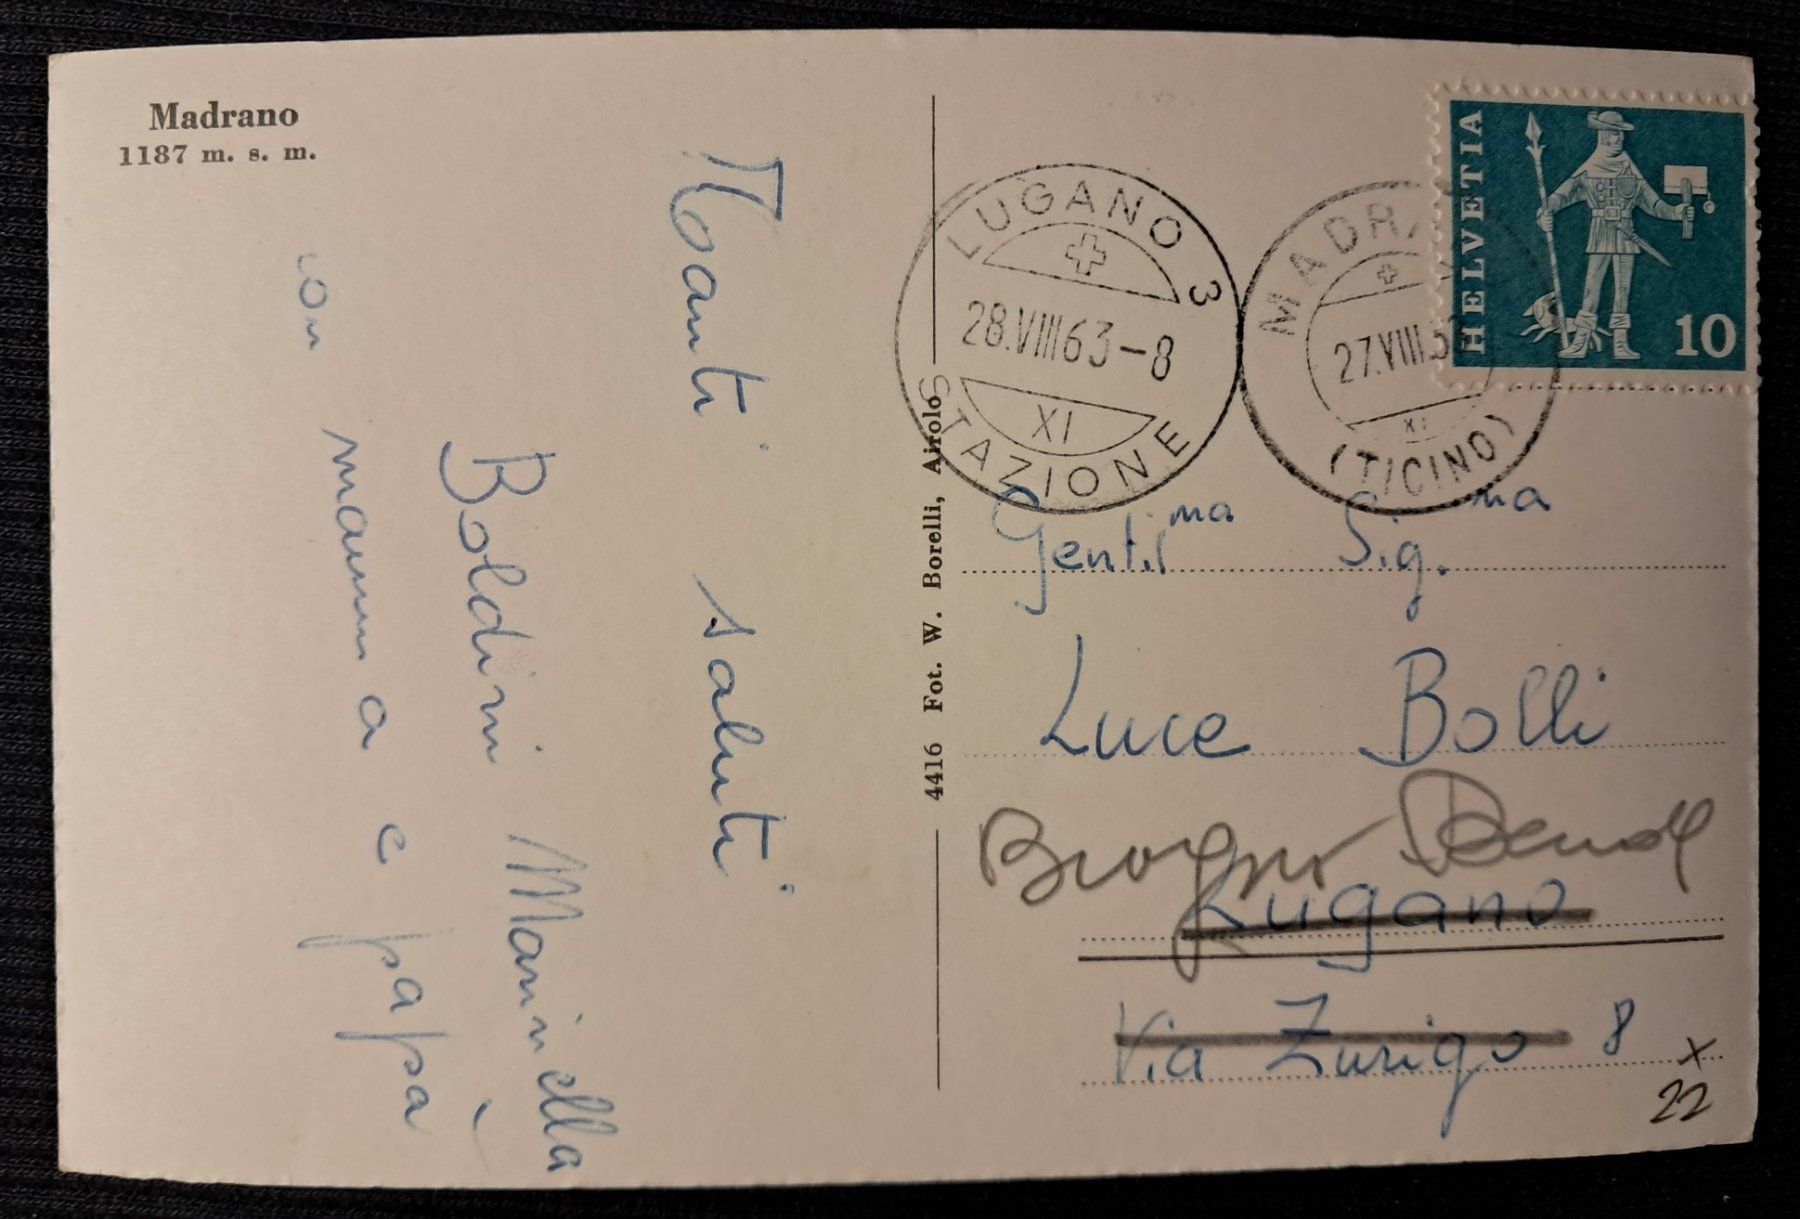 Madrano
1187 m. s. m.
Tanti saluti
Boldini Marinella
con mamma e papà
4416 Fot. W. Borelli, Airolo
LUGANO 3
28.VIII 63-8
XI
STAZIONE
MADRA
27.VIII.63
XI
(TICINO)
HELVETIA
10
Gentil.ma Sig.na
Luce Bolli
Biogno
Lugano
Via Zurigo 8
x
22